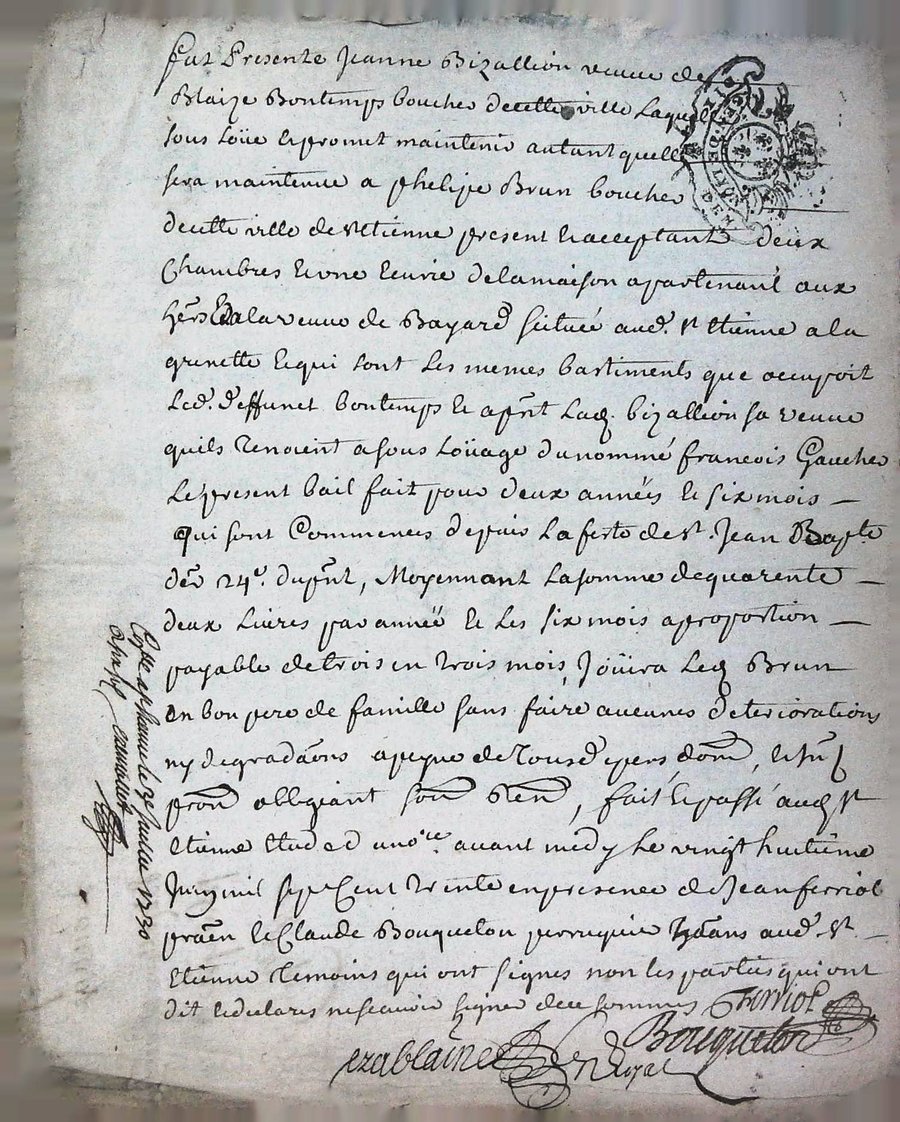 fut Presente Jeanne Bizallion veuve de
Blaize Bontemps boucher decette ville Laquelle
sous Loüe et promet maintenir autant quelle
sera maintenue a phelipe Brun boucher
decette ville de st etienne present et acceptant deux
Chambres et une Ecurie delamaison apartenant aux
hers et a la veuve de Bayard scituée aud. st etienne a la
grenette et qui sont Les memes bastiments que occupoit
Led. deffunct bontemps et aprêt Lad. bizallion sa veuve
quils tenoient a sous Loüage dunommé francois Gaucher
Le present bail fait pour deux années et six mois
qui sont Commencés depuis La feste de st. Jean Bapte
der 24e. du pnt, Moyennant Lasomme dequarente
deux Livres par année et Les six mois a proportion
payable de trois en trois mois, Joüira Led Brun
en bon pere de famille sans faire aucunes deteriorations
ny degradaons apeyne de tous depens dom,
prom obligeant soum Renon, fait et passé aud st
etienne Etude d unore. avant midy Le vingt huitieme
Juin mil sept Cent trente en presence de Jean ferriol
praen et Claude Bouqueton perruquier hans aud. st
etienne temoins qui ont signés non les parties qui ont
dit et declares ne scavoir signer dece sommes Ferriol
Bouqueton
ezablaine
Royal
Collé a st etienne le 3e Juillet 1730